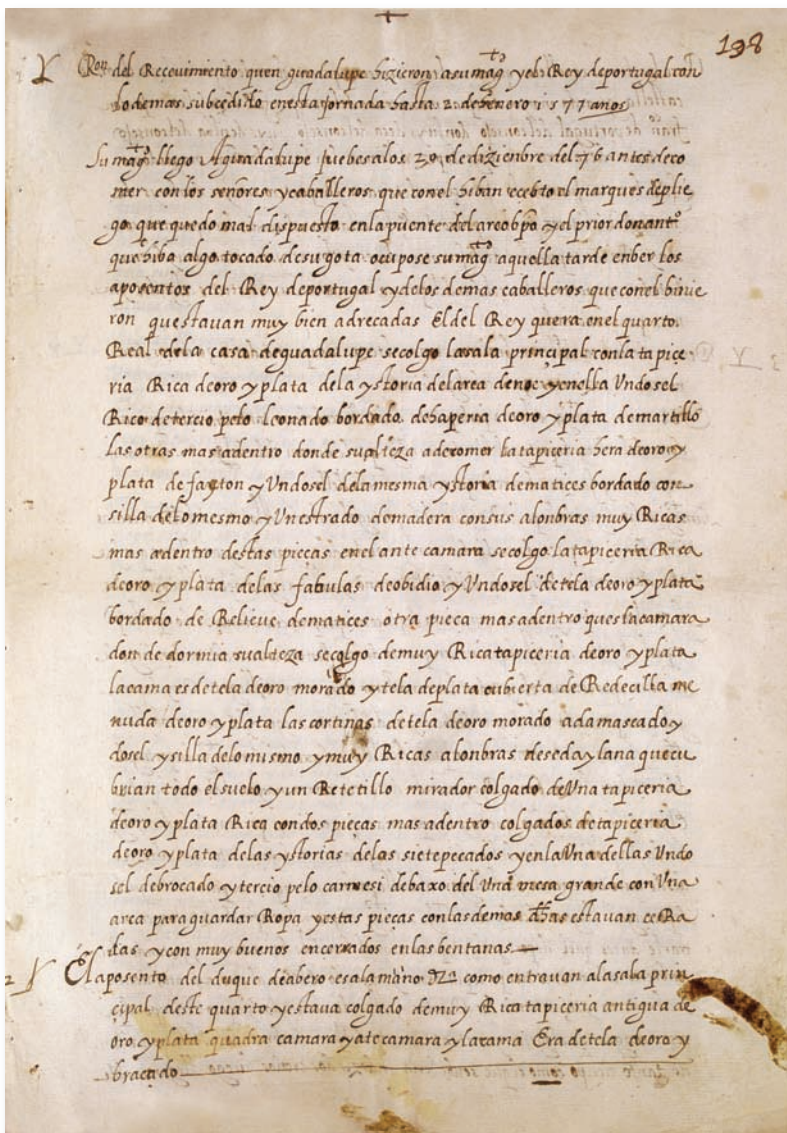 198
Ron del Recevimiento quen guadalupe hizieron asumagd yel Rey deportugal con
lodemas subcedido enesta jornada hasta 2 dehenero 1577 anos
Su magd llego Aguadalupe juebes alos 20 de diziembre del 76 antes deco
mer con los señores ycaballeros que conel hiban ecebto el marques deplie
go que quedo mal dispuesto enla puente del arcobpo yel prior donanto
que hiba algo tocado desugota ocupose sumagd aquella tarde enber los
aposentos del Rey deportugal ydelos demas caballeros queconel binie
ron questavan muy bien adrecadas El del Rey quera enel quarto
Real dela casa deguadalupe secolgo lasala principal conla tapice
ria Rica deoro yplata dela ystoria delarca denoe yenella Undosel
Rico detercio pelo leonado bordado dehaperia deoro yplata demartillo
las otras mas adentro donde sualteza adecomer la tapiceria hera deoro y
plata de fayton yUndosel delamesma ystoria dematices bordado con
silla delomesmo yUnestrado demadera consus alonbras muy Ricas
mas adentro destas piecas enel ante camara secolgo latapiceria Rica
deoro yplata delas fabulas deobidio yUndosel detela deoro yplata
bordado de Relieve dematices otra pieca mas adentro queslacamara
don de dormia sualteza secolgo demuy Rica tapiceria deoro yplata
lacama es detela deoro morado ytela deplata cubierta de Redecilla me
nuda deoro yplata las cortinas detela deoro morado adamascado y
dosel ysilla delo mismo ymuy Ricas alonbras deseda ylana quecu
brian todo elsuelo yun Retetillo mirador colgado deUna tapiceria
deoro yplata Rica condos piecas mas adentro colgados detapiceria
deoro yplata delas ystorias delas sietepecados yenla Una dellas Undo
sel debrocado ytercio pelo carmesi debaxo del Una mesa grande con Una
arca para guardar Ropa yestas piecas conlasdemas dhas estavan ceRa
das ycon muy buenos encerrados enlas bentanas
2 El aposento del duque deabero esalamano como entravan alasala prin
cipal deste quarto yestava colgado demuy Rica tapiceria antigua de
oro yplata quadra camara yatecamara ylacama Era detela deoro y
bracado